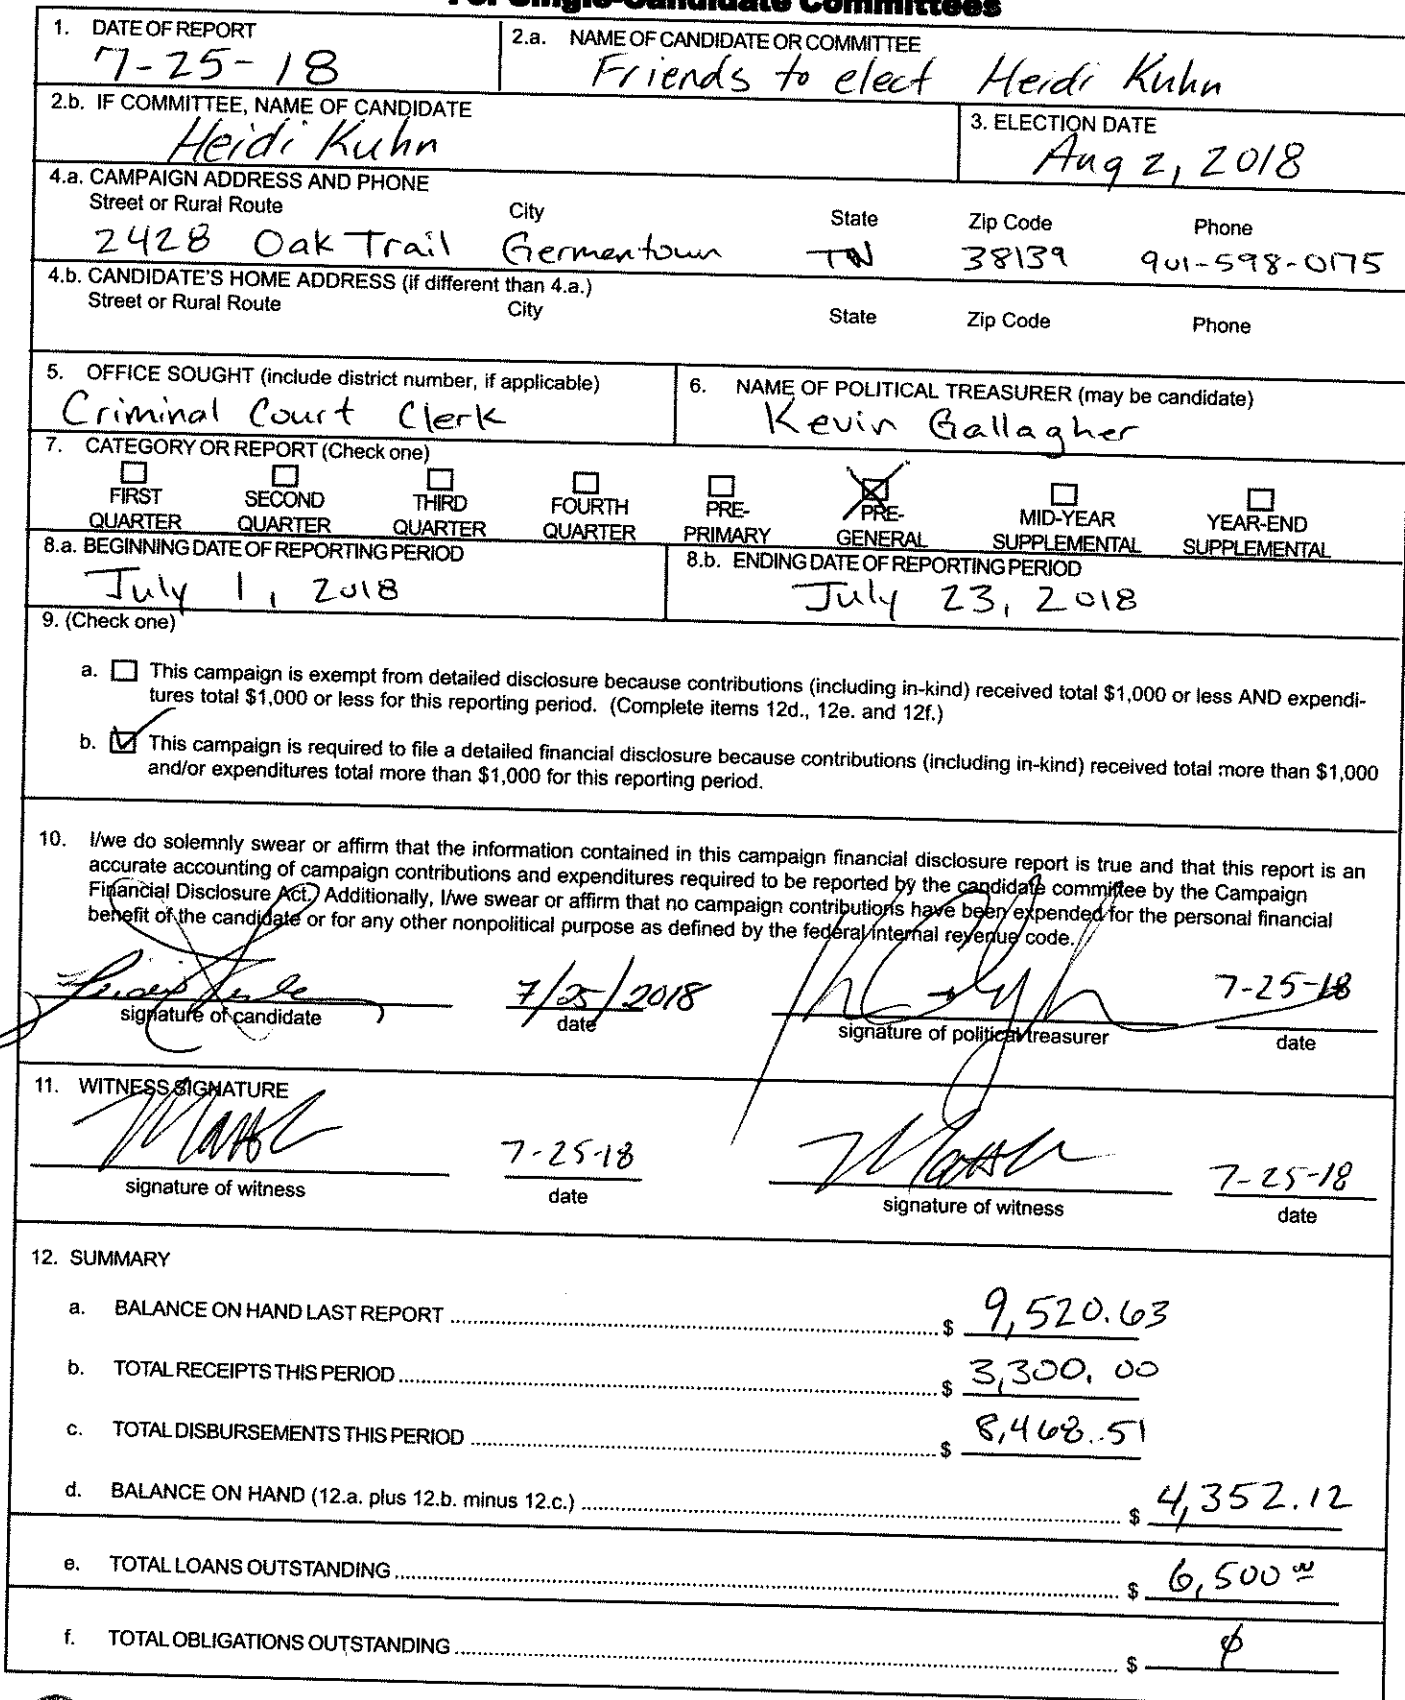 For Single-Candidate Committees
1. DATE OF REPORT
7-25-18
2.a. NAME OF CANDIDATE OR COMMITTEE
Friends to elect Heidi Kuhn
2.b. IF COMMITTEE, NAME OF CANDIDATE
Heidi Kuhn
3. ELECTION DATE
Aug 2, 2018
4.a. CAMPAIGN ADDRESS AND PHONE
Street or Rural Route City State Zip Code Phone
2428 Oak Trail Germantown TN 38139 901-598-0175
4.b. CANDIDATE'S HOME ADDRESS (if different than 4.a.)
Street or Rural Route City State Zip Code Phone
5. OFFICE SOUGHT (include district number, if applicable)
Criminal Court Clerk
6. NAME OF POLITICAL TREASURER (may be candidate)
Kevin Gallagher
7. CATEGORY OR REPORT (Check one)
FIRST QUARTER
SECOND QUARTER
THIRD QUARTER
FOURTH QUARTER
PRE-PRIMARY
PRE-GENERAL
MID-YEAR SUPPLEMENTAL
YEAR-END SUPPLEMENTAL
8.a. BEGINNING DATE OF REPORTING PERIOD
July 1, 2018
8.b. ENDING DATE OF REPORTING PERIOD
July 23, 2018
9. (Check one)
a. This campaign is exempt from detailed disclosure because contributions (including in-kind) received total $1,000 or less AND expendi-
tures total $1,000 or less for this reporting period. (Complete items 12d., 12e. and 12f.)
b. This campaign is required to file a detailed financial disclosure because contributions (including in-kind) received total more than $1,000
and/or expenditures total more than $1,000 for this reporting period.
10. I/we do solemnly swear or affirm that the information contained in this campaign financial disclosure report is true and that this report is an
accurate accounting of campaign contributions and expenditures required to be reported by the candidate committee by the Campaign
Financial Disclosure Act. Additionally, I/we swear or affirm that no campaign contributions have been expended for the personal financial
benefit of the candidate or for any other nonpolitical purpose as defined by the federal internal revenue code.
7/25/2018 7-25-18
signature of candidate date signature of political treasurer date
11. WITNESS SIGNATURE
7-25-18 7-25-18
signature of witness date signature of witness date
12. SUMMARY
a. BALANCE ON HAND LAST REPORT $ 9,520.63
b. TOTAL RECEIPTS THIS PERIOD $ 3,300.00
c. TOTAL DISBURSEMENTS THIS PERIOD $ 8,468.51
d. BALANCE ON HAND (12.a. plus 12.b. minus 12.c.) $ 4,352.12
e. TOTAL LOANS OUTSTANDING $ 6,500 00
f. TOTAL OBLIGATIONS OUTSTANDING $ ϕ